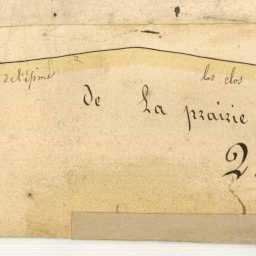 de l'épine
les clos
de La prairie
2